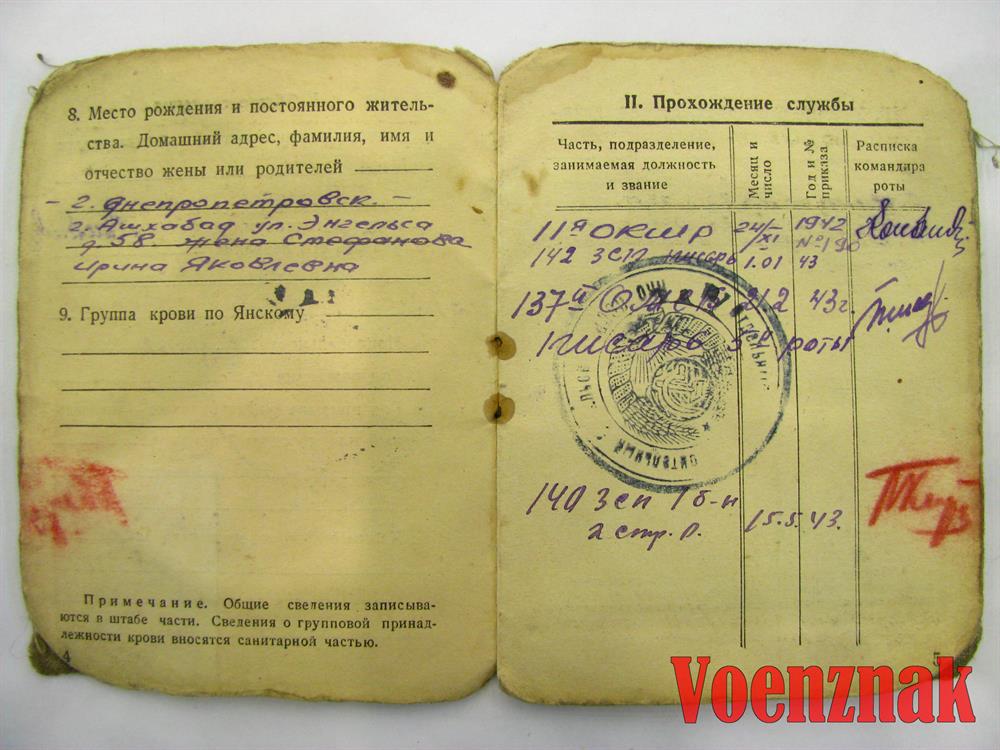 8. Место рождения и постоянного житель-
ства. Домашний адрес, фамилия, имя и
отчество жены или родителей
- г. Днепропетровск -
г. Ашхабад ул. Энгельса
д. 58. жена Стефанова
Ирина Яковлевна
9. Группа крови по Янскому
Примечание. Общие сведения записыва-
ются в штабе части. Сведения о групповой принад-
лежности крови вносятся санитарной частью.
4
II. Прохождение службы
Часть, подразделение,
занимаемая должность
и звание
Месяц и
число
Год и №
приказа
Расписка
командира
роты
11я ОКШР 24/XI 1942
№190
142 ЗСП писарь 1.01 43
137я 2/2 43г.
писарь роты
140 ЗСП 1 б-н
2 стр. р. 15.5. 43.
5
Voenznak